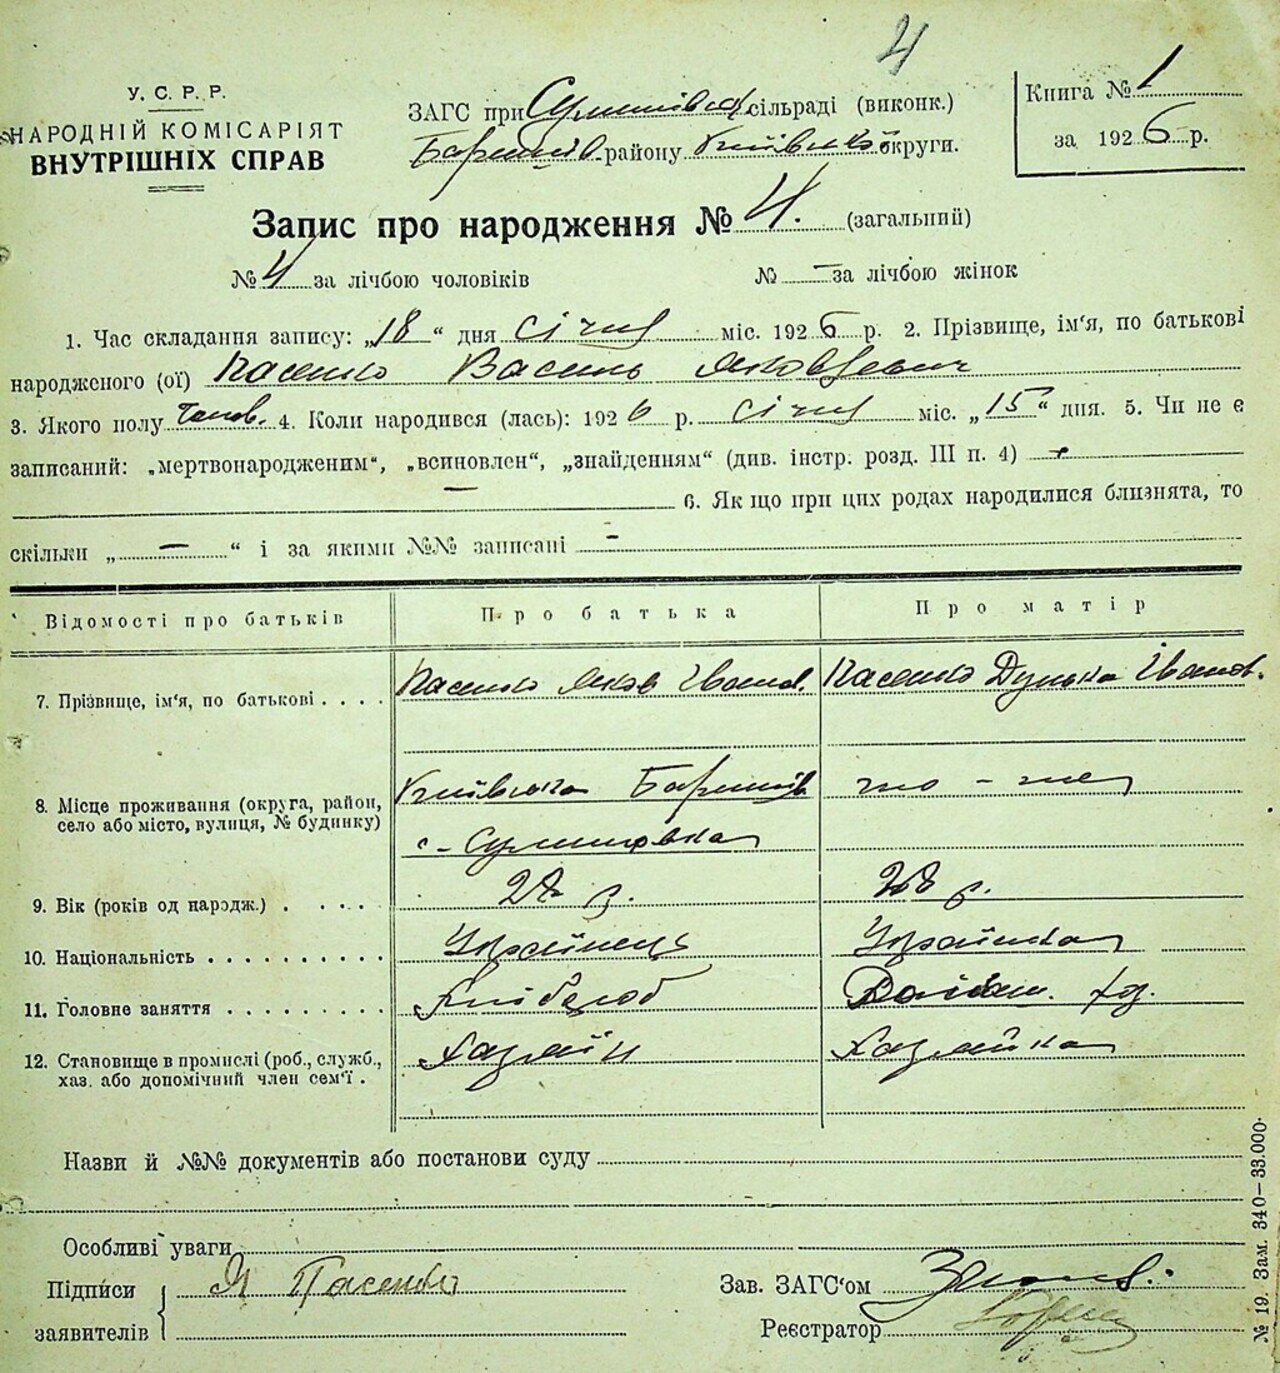 4
У. С. Р. Р.
НАРОДНІЙ КОМІСАРІЯТ
ВНУТРІШНІХ СПРАВ
ЗАГС при сільраді (виконк.)
Баришів. району Київської округи.
Книга № 1
за 1926 р.
Запис про народження № 4. (загальний)
№ 4 за лічбою чоловіків № – за лічбою жінок
1. Час складання запису: „18“ дня січня міс. 1926 р. 2. Прізвище, ім'я, по батькові
народженого (ої) Пасенко Василь Яковлевич
3. Якого полу чолов. 4. Коли народився (лась): 1926 р. січня міс. „15“ дня. 5. Чи не є
записаний: „мертвонародженим“, „всиновлен“, „знайденням“ (див. інстр. розд. III п. 4) –
– 6. Як що при цих родах народилися близнята, то
скільки „ – “ і за якими №№ записані –
Відомості про батьків Про батька Про матір
7. Прізвище, ім'я, по батькові . . . . Пасенко Яков Іванов. Пасенко Дунька Іванов.
8. Місце проживання (округа, район, село або місто, вулиця, № будинку) Київська Баришів то-же
с-
9. Вік (років од народж.) . . . . . 28 р. 28 р.
10. Національність . . . . . . . . . . Українець Українка
11. Головне заняття . . . . . . . . . Хлібороб
12. Становище в промислі (роб., служб., хаз. або допомічний член сем'ї . Хазяїн Хазяйка
Назви й №№ документів або постанови суду
Особливі уваги
Підписи заявителів Я Пасенко
Зав. ЗАГС'ом
Реєстратор
№ 19. Зам. 340–33.000.